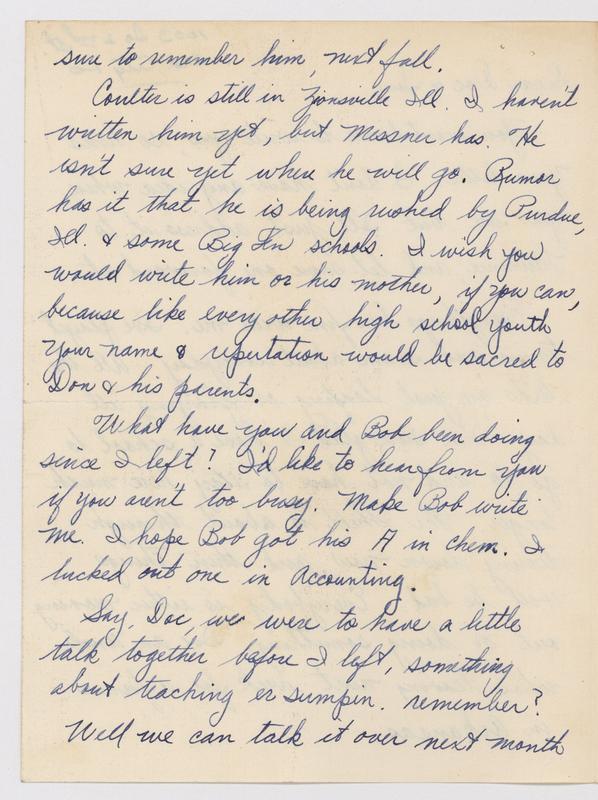 sure to remember him, next fall.
Coulter is still in Zionsville Ill. I haven't
written him yet, but Messner has. He
isn't sure yet where he will go. Rumor
has it that he is being rushed by Purdue,
Ill. & some Big Ten schools. I wish you
would write him or his mother, if you can,
because like every other high school youth
your name & reputation would be sacred to
Don & his parents.
What have you and Bob been doing
since I left? I'd like to hear from you
if you aren't too busy. Make Bob write
me. I hope Bob got his A in chem. I
lucked out one in Accounting.
Say, Doc, we were to have a little
talk together before I left, something
about teaching er sumpin. remember?
Well we can talk it over next month